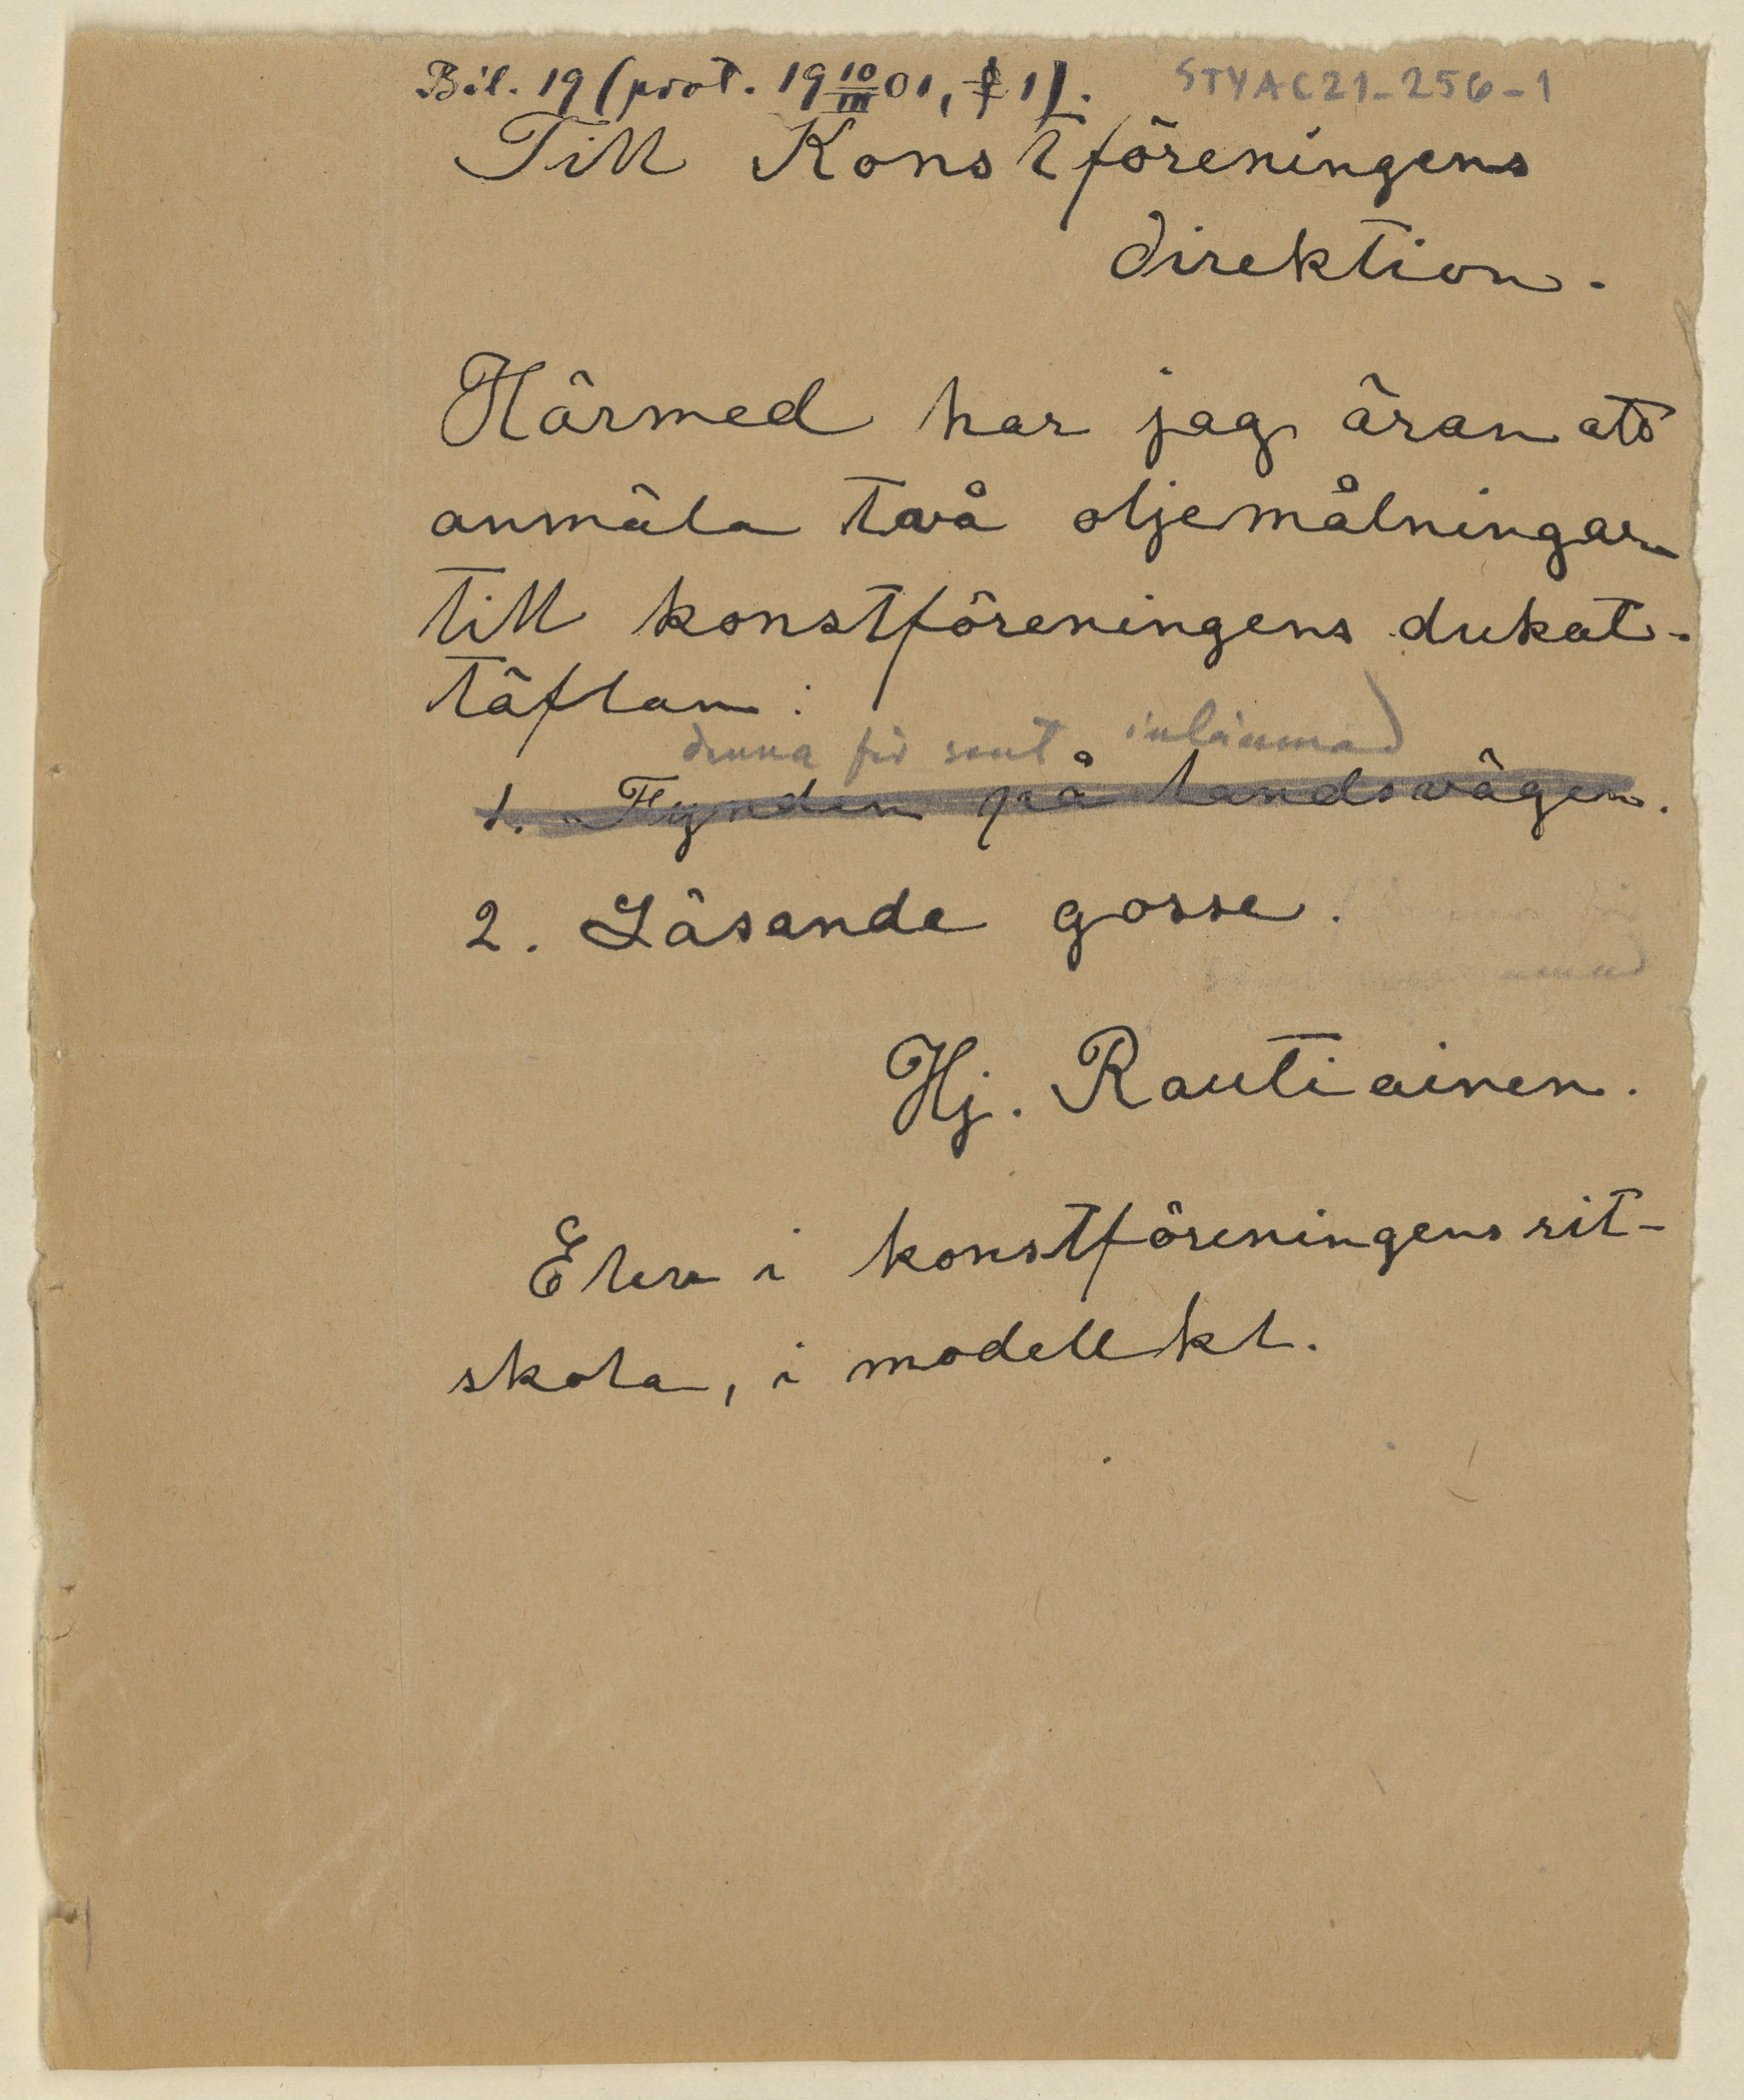 Bil. 19 (prot. 19 10/III 01, § 1). STYAC21-256-1
Till Konstföreningens
direktion.
Härmed har jag äran att
anmäla två oljemålningar
till konstföreningens dukat-
täflan:
denna för sent inlämnad
1. Flynden på landsvägen.
2. Läsande gosse.
Hj. Rautiainen.
Elev i konstföreningens rit-
skola, i modellkl.